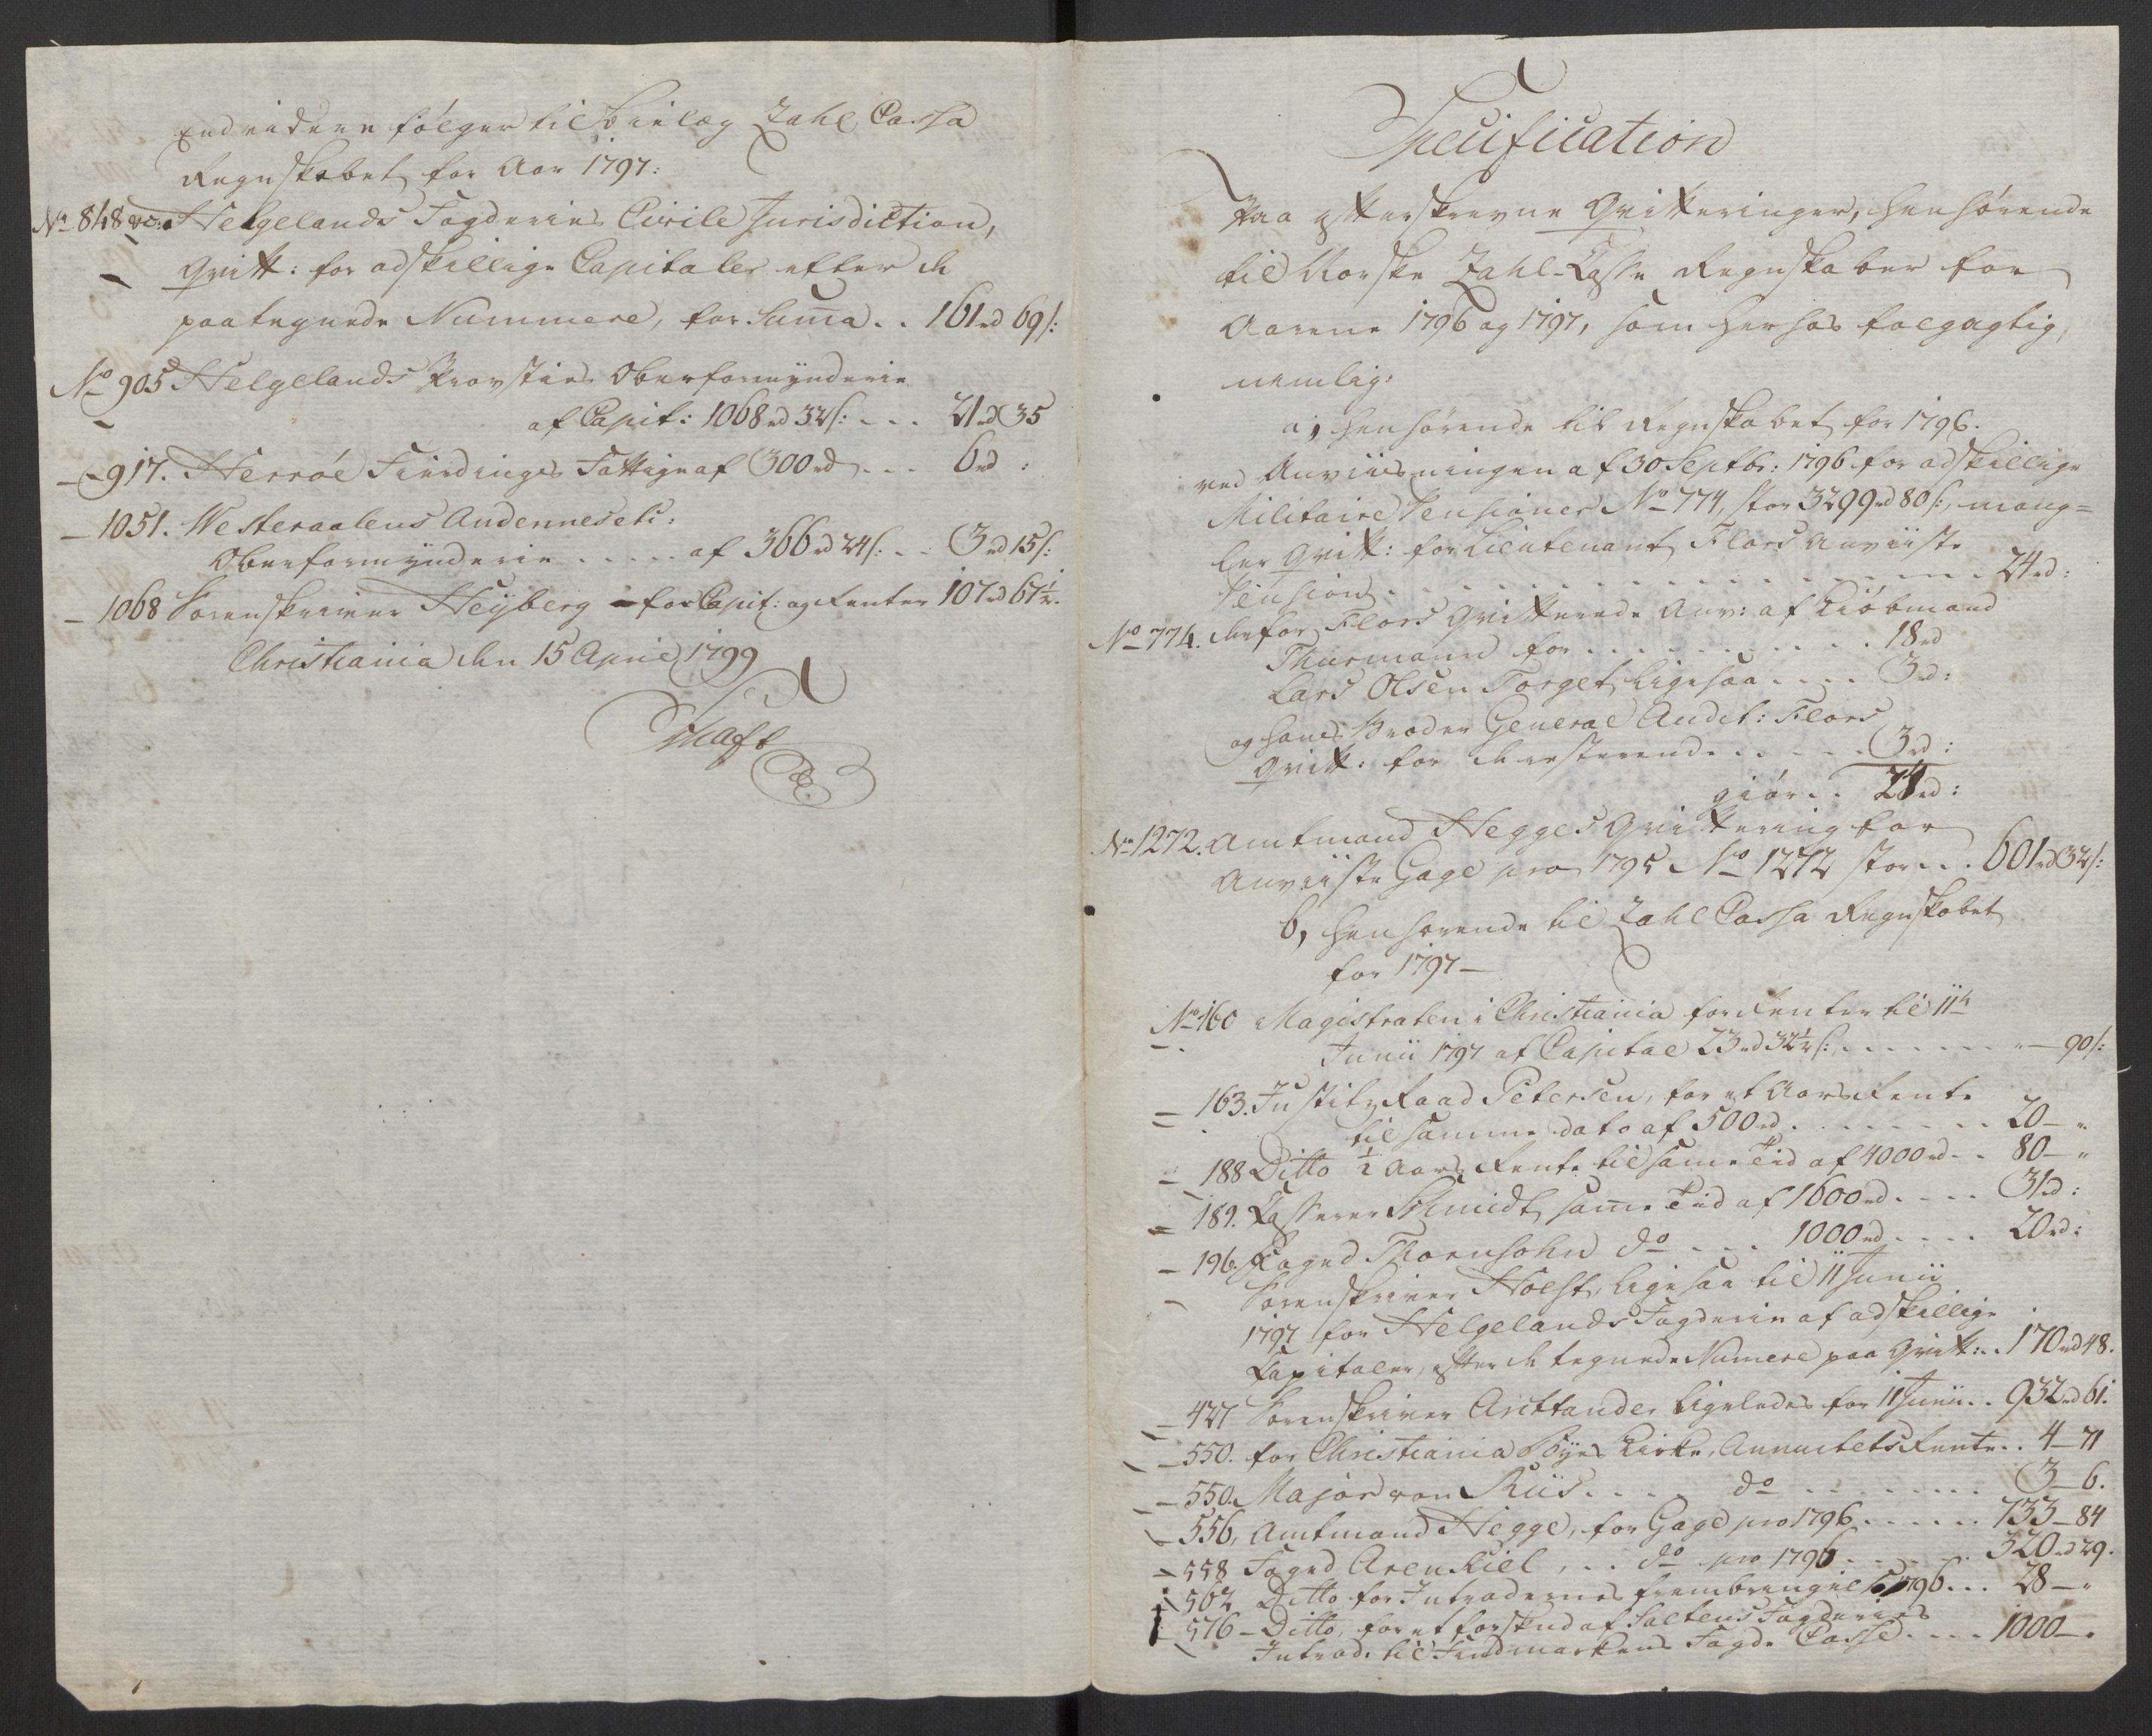 Endvidere følger til Bielag Zahl Cassa
Regnskabet for Aar 1797:
No 848 Helgelands Fogderies Civile Jurisdiction,
Qvitt: for adskillige Capitaler efter de
paategnede Nummere, for Suma .. 161 rd 69 s:
No 905 Helgelands Provsties Oberformynderie
af Capit: 1068 rd 32 s: ... 21 rd 35
- 917. Herröe Fierdings Fattige af 300 rd ... 6 rd :
- 1051. Westeraalens Andennes etc:
Oberformynderie ..... af 366 rd 24 s: .. 3 rd 15 s:
- 1068 Sorenskriver Heyberg - for Capit: og Renter 107 rd 67½.
Christiania den 15 April 1799
Schaft
Specification
Paa efterskrevne Qvitteringer, henhørende
til Norske Zahl-Casse Regnskaber for
Aarene 1796 og 1797, som herhos følgagtig,
nemlig:
a, henhørende til Regnskabet for 1796.
ved Anviisningen af 30 Septbr: 1796 for adskillige
Militaire Pensioner No 774, stor 3299 rd 80 s:, mang=
ler Qvitt: for Lieutenant Flors anviiste
Pension ............ 24 rd:
No 774. derfor Flors Qvitterede Anv: af Kiøbmand
Thurmann for .......... 18 rd
Lars Olsen Torget, ligesaa .... 3 rd:
og hans Broder General Audit: Flors
Qvitt: for de resterende ..... 3 rd:
giør .. 24 rd:
No 1272. Amtmand Hegges Qvittering for
Anviiste Gage pro 1795 No 1272 stor ... 601 rd 32 s:
b, henhørende til Zahl Cassa Regnskabet
for 1797 -
No 160 Magistraten i Christiania for Renter til 11te
Junii 1797 af Capital 23 rd 32½ s: ....... " - 90 s:
- 163. Justitz Raad Petersen, for et Aars Rente
til samme dato af 500 rd ........ 20 - "
- 188 Ditto ½ Aars Rente til same Tid af 4000 rd .. 80 - "
- 189. Casserer Schmidt, same Tid af 1600 rd .... 31 rd:
- 196. Foged Thornsohn do ... 1000 rd .... 20 rd:
Sorenskriver Holst, ligesaa til 11 Junii
1797 for Helgelands Fogderie af adskillige
Capitaler, efter de tegnede Numere paa Qvitt: .. 170 rd 48.
- 427 Sorenskriver Arctander ligeledes for 11 Junii .. 932 rd 61.
- 550. for Christiania Byes Kirke, Annuitets Rente .. 4 - 71
- 550. Major von Riis .... do ......... 3 - 6.
- 556, Amtmand Hegge, for Gage pro 1796 ...... 733 - 84
- 558 Foged Arenkiel, .. do pro 1796 ...... 320 rd 29.
- 562 Ditto for Intradernes frembringelse 1796 ... 28 - "
- 576 - Ditto, for et forskud af Saltens Fogderies
Intrad: til Findmarkens Fogd: Casse .... 1000 - "